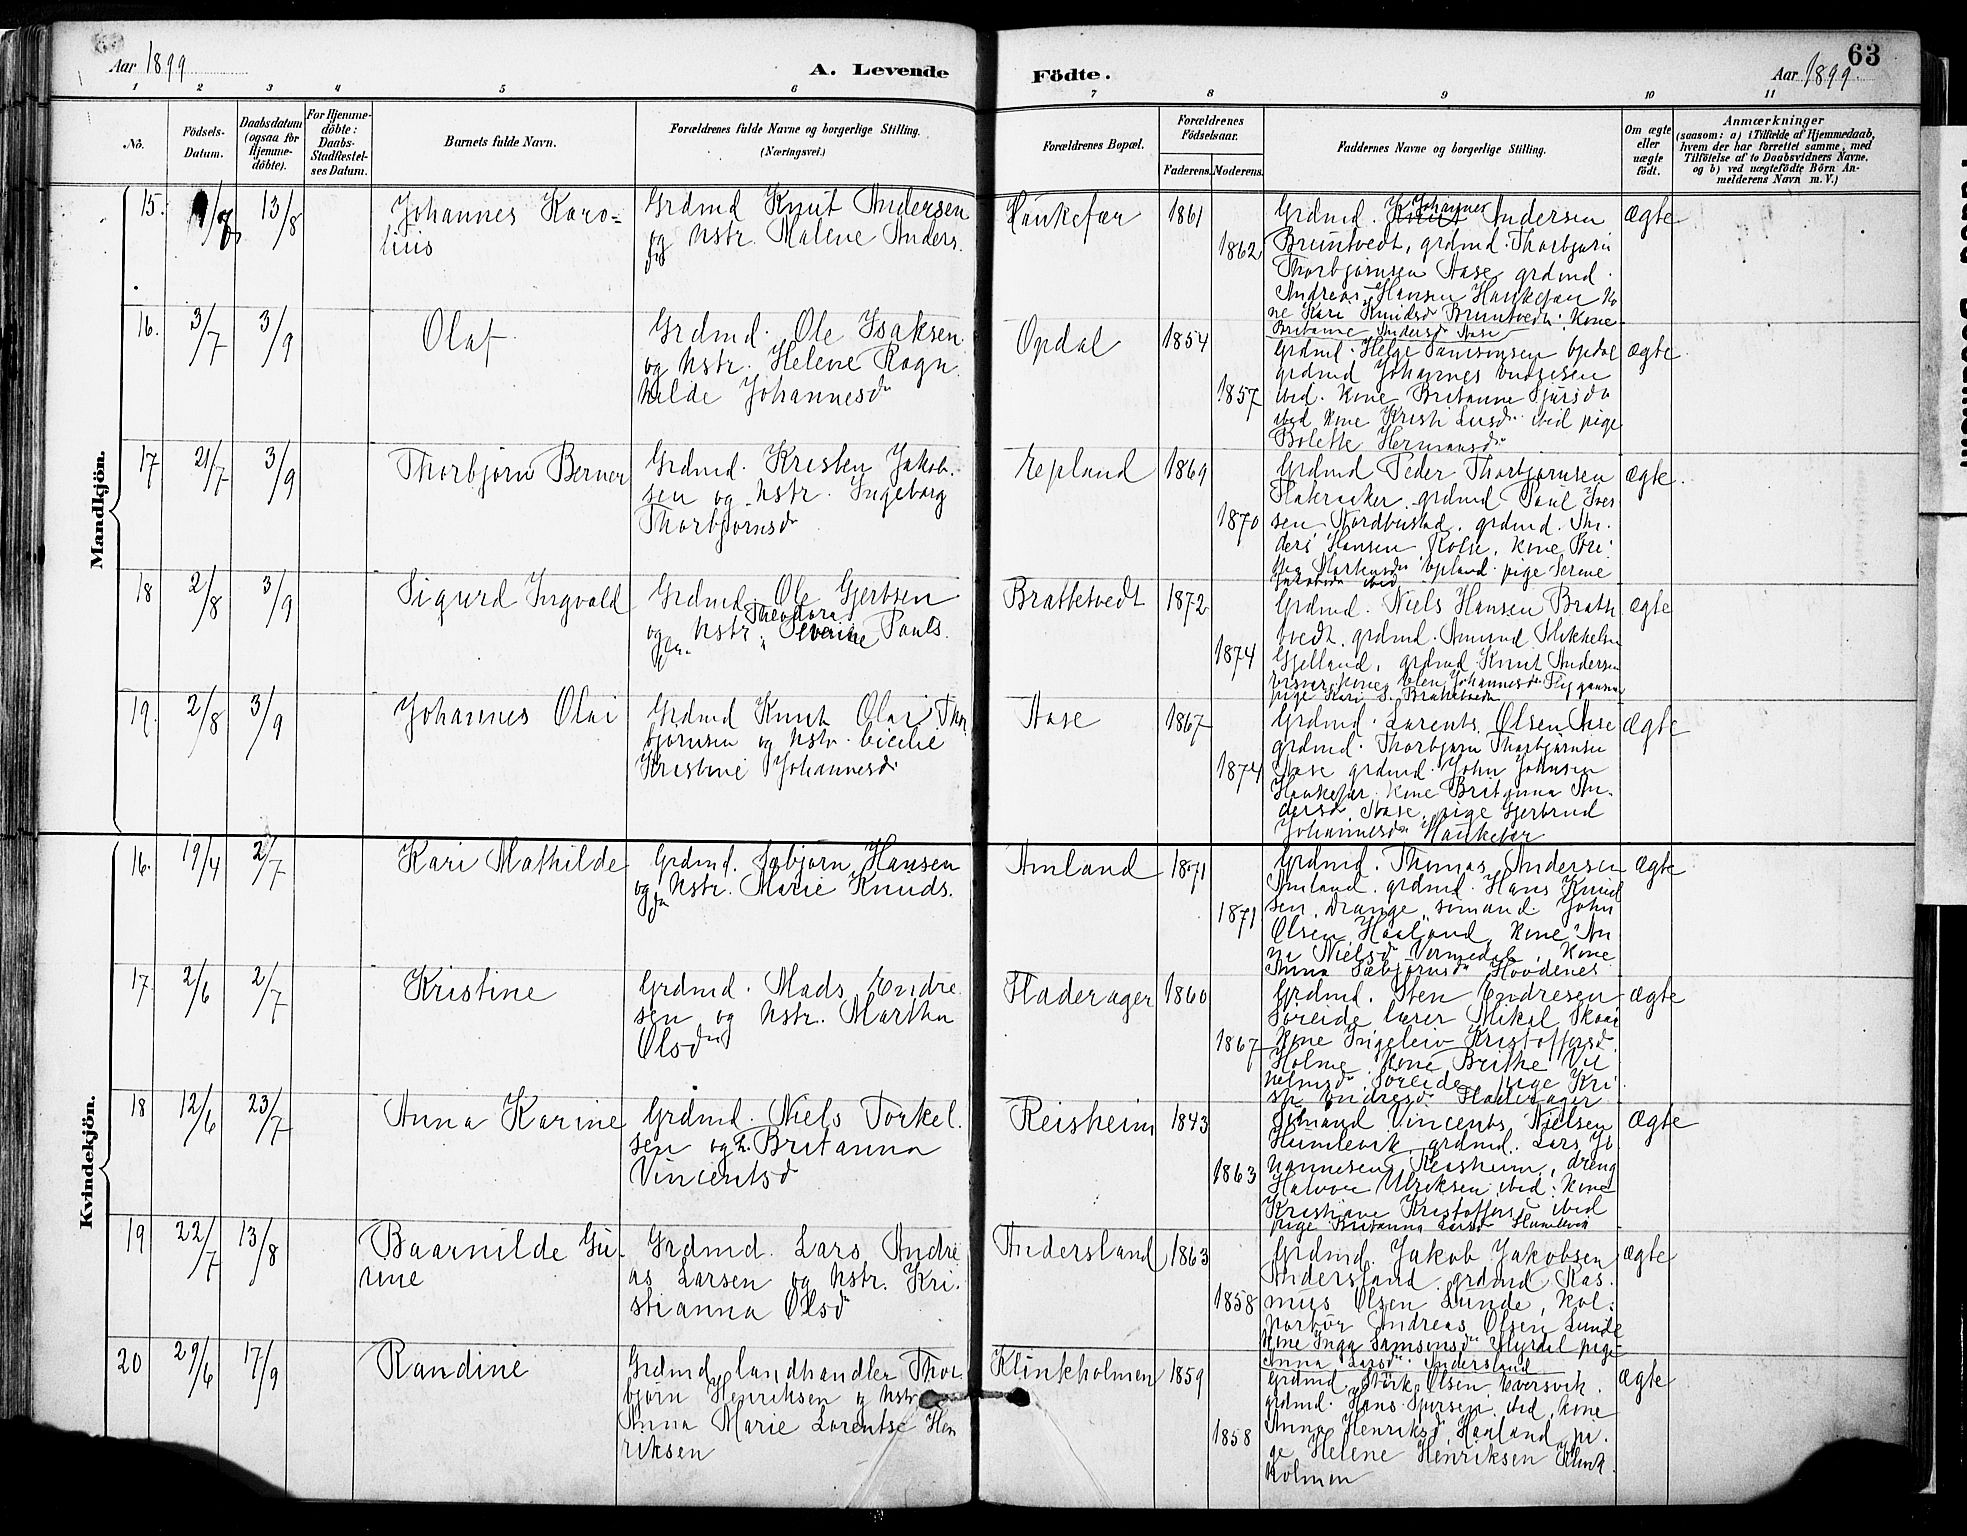 Aar 1899
A. Levende
Födte.
63
Aar 1899.
1 2 3 4 5 6 7 8 9 10 11
No.
Födsels-
Datum.
Daabsdatum
(ogsaa for
Hjemme-
döbte).
For Hjemme-
döbte:
Daabs-
Stadfæstel-
ses Datum.
Barnets fulde Navn.
Forældrenes fulde Navne og borgerlige Stilling.
(Næringsvei.)
Forældrenes Bopæl.
Forældrenes
Födselsaar.
Faderens. Moderens.
Faddernes Navne og borgerlige Stilling.
Om ægte
eller
uægte
födt.
Anmærkninger
(saasom: a) i Tilfælde af Hjemmedaab,
hvem der har forrettet samme, med
Tilföielse af to Daabsvidners Navne.
og b) ved uægtefödte Börn An-
melderens Navn m. V.)
Mandkjön.
15. 13/8
Johannes Karo-
lius
Grdmd Knut Andersen
og hstr. Malene Anders.
dr
Haukefær
1861
1862
Grdmd. Johannes Andersen
Bruntvedt, grdmd. Thorbjørn
Thorbjørnsen Aase grdmd.
Andreas Hansen Haukefær Ko
ne Kari Knudsd Bruntvedt. Kone
Britanne Andersd Aase
ægte
16. 3/7 3/9
Olaf
Grdmd. Ole Isaksen
og hstr. Helene Ragn
hilde Johannesdr
Opdal
1854
1857
Grdmd. Helge Samsonsen Opdal
grdmd Johannes
ibid. Kone Britanne Sjursdr
ibid Kone Kristi Larsdr ibid pige
Bolette Hermansdr
ægte
17 21/7 3/9
Thorbjørn Berner
Grdmd. Kristen Jakob.
sen og hstr. Ingeborg
Thorbjørnsdr
Epland
1869
1870
Grdmd Peder Thorbjørnsen
Flateraker. grdmd Paul Iver
sen Nordhustad. grdmd.
Hansen Kone Bri.
Martensdr Epland pige Serine
Jakobsdr ibid
ægte.
18 2/8 3/9
Sigurd Ingvald
Grdmd. Ole Gjertsen
og hstr. Theodora Severine Pauls.
dr.
Brattetvedt
1872
1874
Grdmd. Niels Hansen Bratte
tvedt, grdmd. Amund Mikkelsen
Gjelland, grdmd Knut Andersen
Kone Elen Johannesdr
pige Kari S. Brattetvedt
ægte
19. 2/8 3/9
Johannes Olai
Grdmd Knut Olai Thor
bjørnsen og hstr. Cicilie
Kristine Johannesdr
Aase
1867
1874
Grdmd. Larents Olsen Aase
grdmd. Thorbjørn Thorbjørnsen
Aase grdmd. John Johnsen
Haukefær. Kone Britanna An-
dersd. Aase. pige Gjertrud
Johannesdr Haukefær
ægte
Kvindekjön.
16. 19/4 2/7
Kari Mathilde
Grdmd. Sæbjørn Hansen
og hstr. Marie Knuds.
dr
Amland
1871
1871
Grdmd. Thomas Andersen
Amland. grdmd. Hans Knud
sen. Drange, sømand John
Olsen Haaland, Kone An
na Nielsd Kone
Anna Sæbjørnsdr Hovdenes
ægte
17. 2/6 2/7
Kristine
Grdmd. Mads Endre
sen og hstr. Martha
Olsdr
Fladerager
1860
1867
Grdmd. Sten Endresen
Søreide lærer Mikal Skaar
Kone Ingeleiv Kristoffersd.
Holme. Kone Brithe Vil
helmsd. Søreide. pige Kri
sti Endresd. Fladerager
ægte
18 12/6 23/7
Anna Karine
Grdmd. Niels Torkel.
sen og h. Britanna
Vincentsd
Reisheim
1843
1863
Sømand Vincents Nielsen
Humlevik grdmd. Lars Jo
hannesen Reisheim, dreng
Halvor Ulriksen ibid. Kone
Kristiane Kristoffersd ibid
pige Britanna Larsd Humlevik
ægte
19 22/7 13/8
Baarnilde Gu-
rine
Grdmd. Lars Andre
as Larsen og hstr. Kri.
stianna Olsdr
Andersland
1863
1858
Grdmd. Jakob Jakobsen
Andersland, grdmd Ras.
mus Olsen Lunde, Kol.
portør Andreas Olsen Lunde
Kone Inga Samsonsdr Myrdal pige
Anna Larsdr. Andersland
ægte
20 29/6 17/9
Randine
Grdmd, landhandler Thor.
bjørn Henriksen og hstr
Anna Marie Larentse Hen
riksen
Klinkholmen
1859
1858
Grdmd. Størk Olsen Eversvik.
grdmd. Hans Sjursen ibid, Kone
Anna Henriksd. Haaland, pi.
ge Helene Henriksen Klink
holmen
ægte